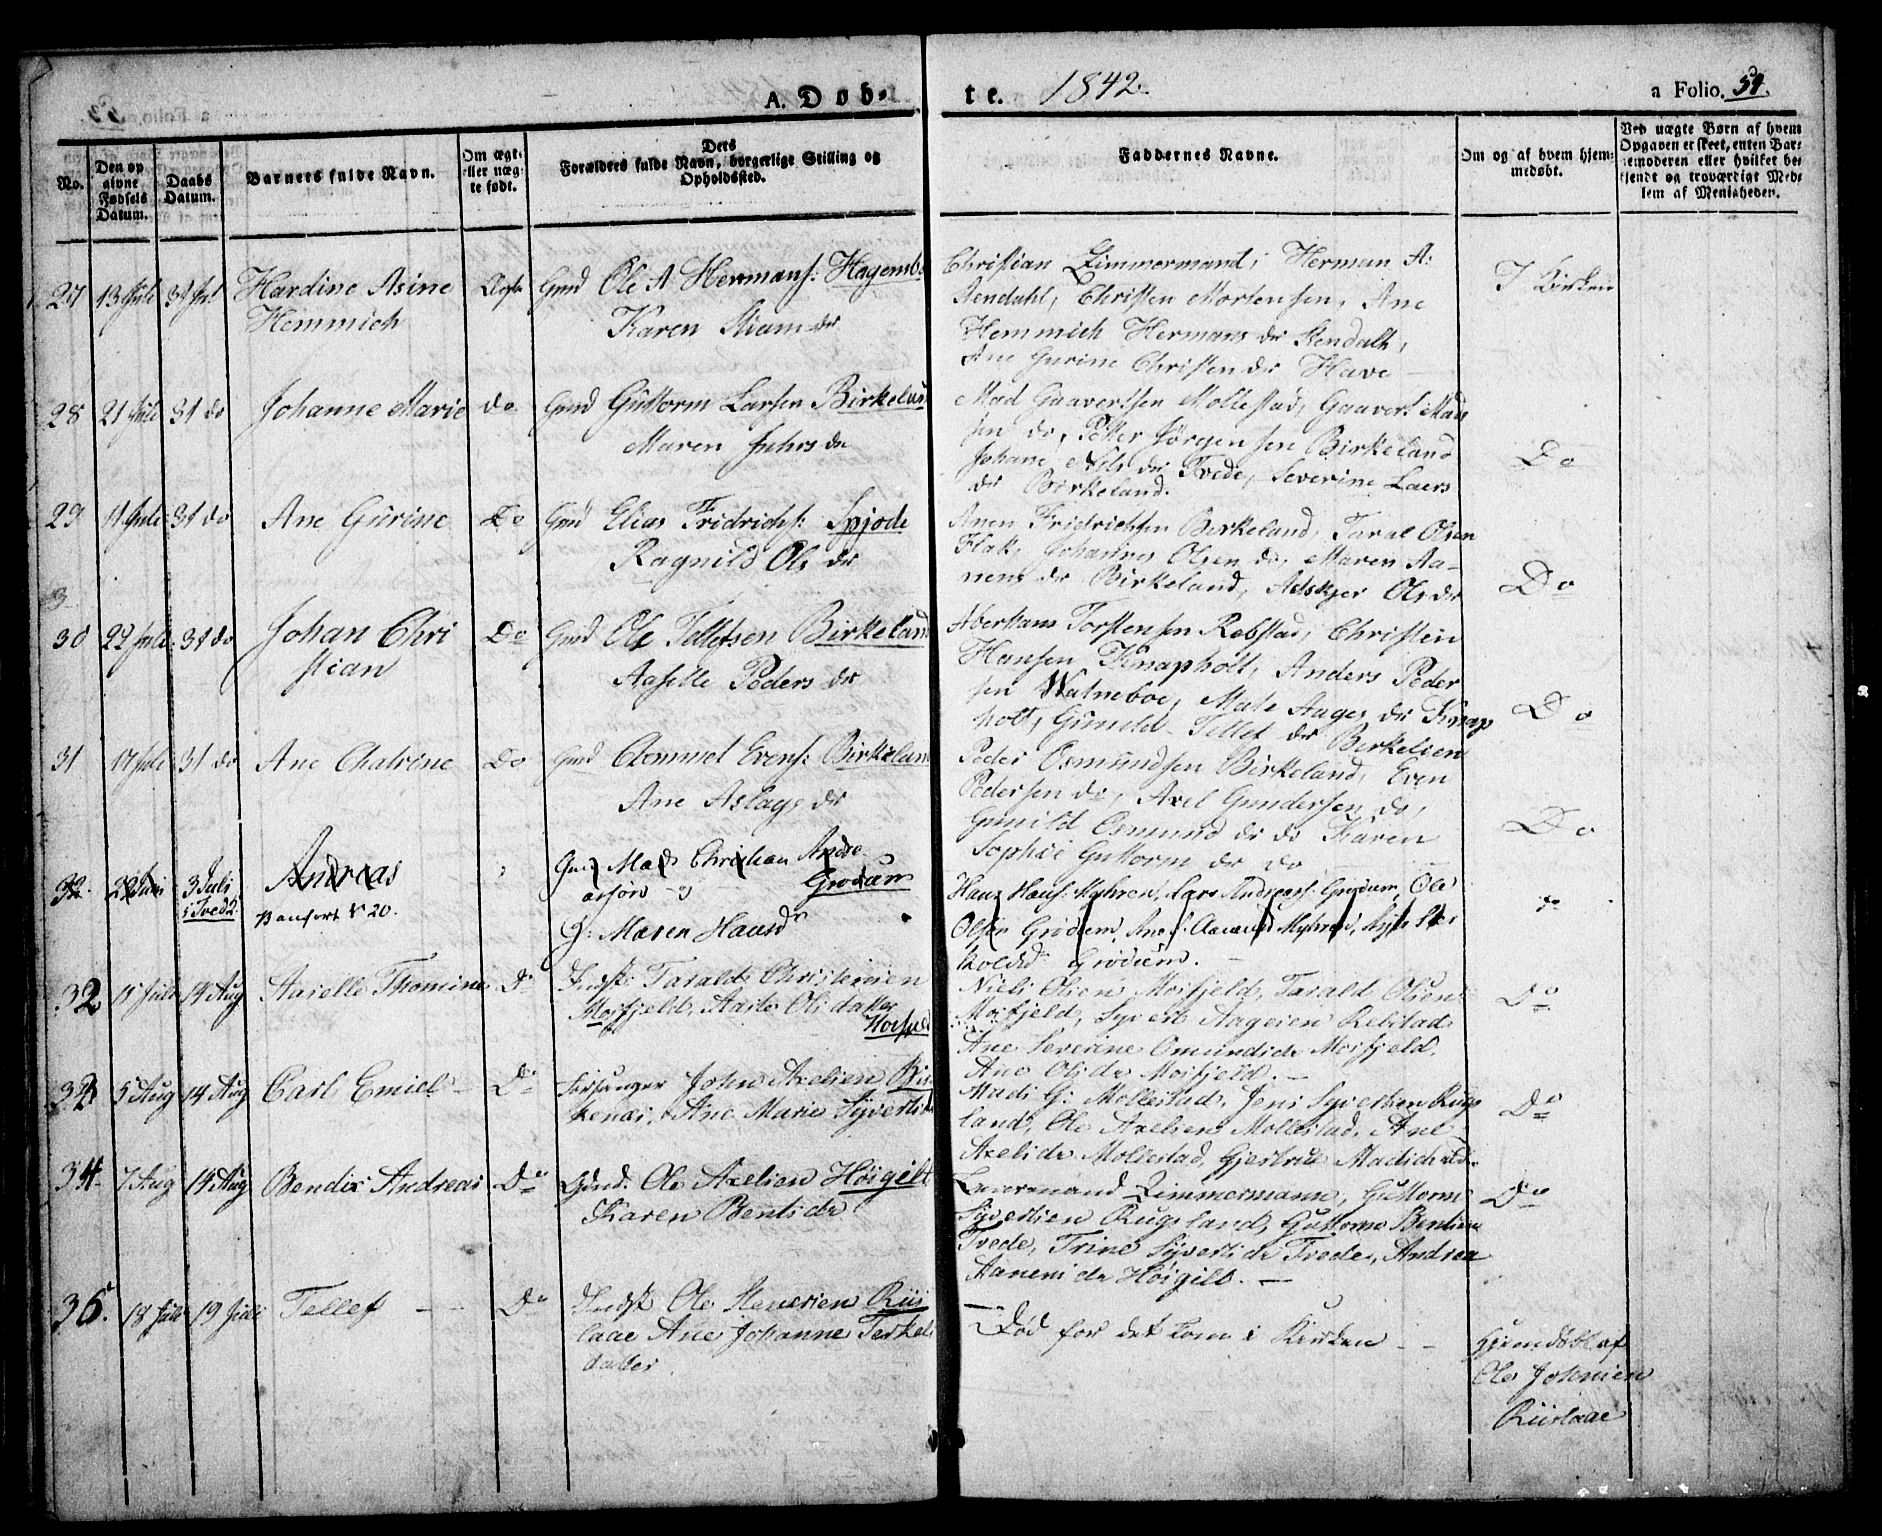 A. Døb-
te. 1842.
a Folio. 54.
No.
Den op
givne
Fødsels
Datum.
Daabs
Datum.
Barnets fulde Navn.
Om ægt-
eller uæg-
te født.
Dets
Forældres fulde Navn, borgerlige Stilling og
Opholdssted.
Faddernes Navne.
Om og af hvem hjem-
medøbt.
Ved uægte Børn af hvem
Opgaven er skeet, enten Bar-
nemoderen eller hvilket be-
kjendt og troværdigt Med-
lem af Menigheden.
27 13 Juli 31 Jul Hardine Asine Ægte Gmd Ole A Hermans: Hagens
Hemmich
Karen
Christian Zimmermand, Herman A:
Aendahl, Christen Mortensen, Ane
Hemmich Hermans dr Stendalh,
Ane Gurine Christen dr Have
I Kirken
28 21 Juli 31 do Johanne Marie do Gmd Guttorm Larsen Birkelan
Maren Juhrs dr
Mad Gaavertsen Mollestad, Gaavert Mad
sen do, Petter Jørgensen Birkeland
Johane Nils dr Tvede, Severine Laers
dr Birkeland.
Do
29 14 Juli 31 do Ane Gurine Do Gmd Elias Fridrichs: Spjode
Ragnild Ols dr
Anen Fridrichsen Birkeland, Taral Olsen
Flak, Johannes Olsen do, Maren Aa-
nens dr Birkeland, Ols dr
Do
30 22 Juli 31 do Johan Chri Do Gmd Ole Tellefsen Birkeland
stian
Aaselle Peders dr
Aberham Torstensen Rebstad, Christen
Hansen Knapholt, Anders Peder
sen Watneboe, Aages dr Knap
holt, Gunild Tellef dr Birkelien
Do
31 17 Juli 31 do Ane Chatrine Do Gmd Aommet Evens: Birkelan
Ane Aslags dr
Peder Osmundsen Birkeland, Even
Pedersen do, Axel Gundersen do,
Gunild Osmund dr do Karen
Sophie Guttorm dr do
Do
32. 22 Juni 3 Juli
i Tved
Andreas
N 20.
Mads Christian Andre
Grødum
G: Maren Hansd
Hans Hans: Myhren, Lars Andreass: Grødum, Ole
Olsen Grødum, Ane Aamund Myhren,
Grødum.
32 15 Juli 14 Aug Aaselle Thomine Do Tarald Christensen
Moifjeld, Aasle Olsdatter
Niels Olsen Moifjeld, Tarald Olsen
Moifjeld, Syvert Aagesen Rebstad
Ane Severine Omundsdr Moifjeld,
Ane Olsdr Moifjeld. —
Do
5 Aug 14 Aug Carl Emiel — Do John Axelsen Bir
kenæs, Ane Marie Syverts
Mads G: Mollestad, Jens Syvertsen Rugs
land, Ole Axelsen Mollestad, Ane
Axelsdr Mollestad, Gjertrud Madsdr
Do
34. 7 Aug 14 Aug Bendix Andreas Do Gmd. Ole Axelsen Høigilt
Karen Bentsdr
Zimmermann, Guttorm
Syvertsen Rugsland, Guttorm Bentsen
Tvede, Trine Syvertsdr Tvede, Andrea
Aanensdr Høigilt. —
Do
36. 18 Juli 19 Juli Tellef — — Do Ole Stenersen Riis
laae Ane Johanne Terkels
datter
Død før det kom i Kirken — —
Hjemdøbt af
Ole Johnsen
Riislaae